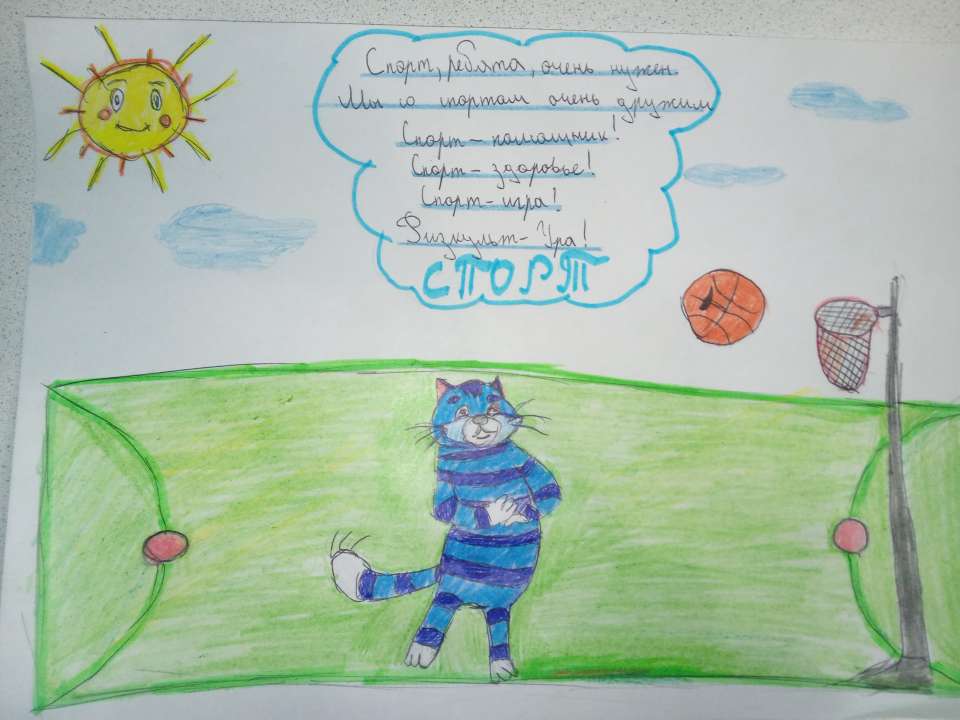 Спорт, ребята, очень нужен.
Мы со спортом очень дружим
Спорт - помощник!
Спорт - здоровье!
Спорт - игра!
Физкульт - Ура!
СПОРТ